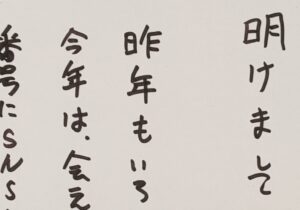 明けまして
昨年もいろ
今年は、会え
番号にSNS